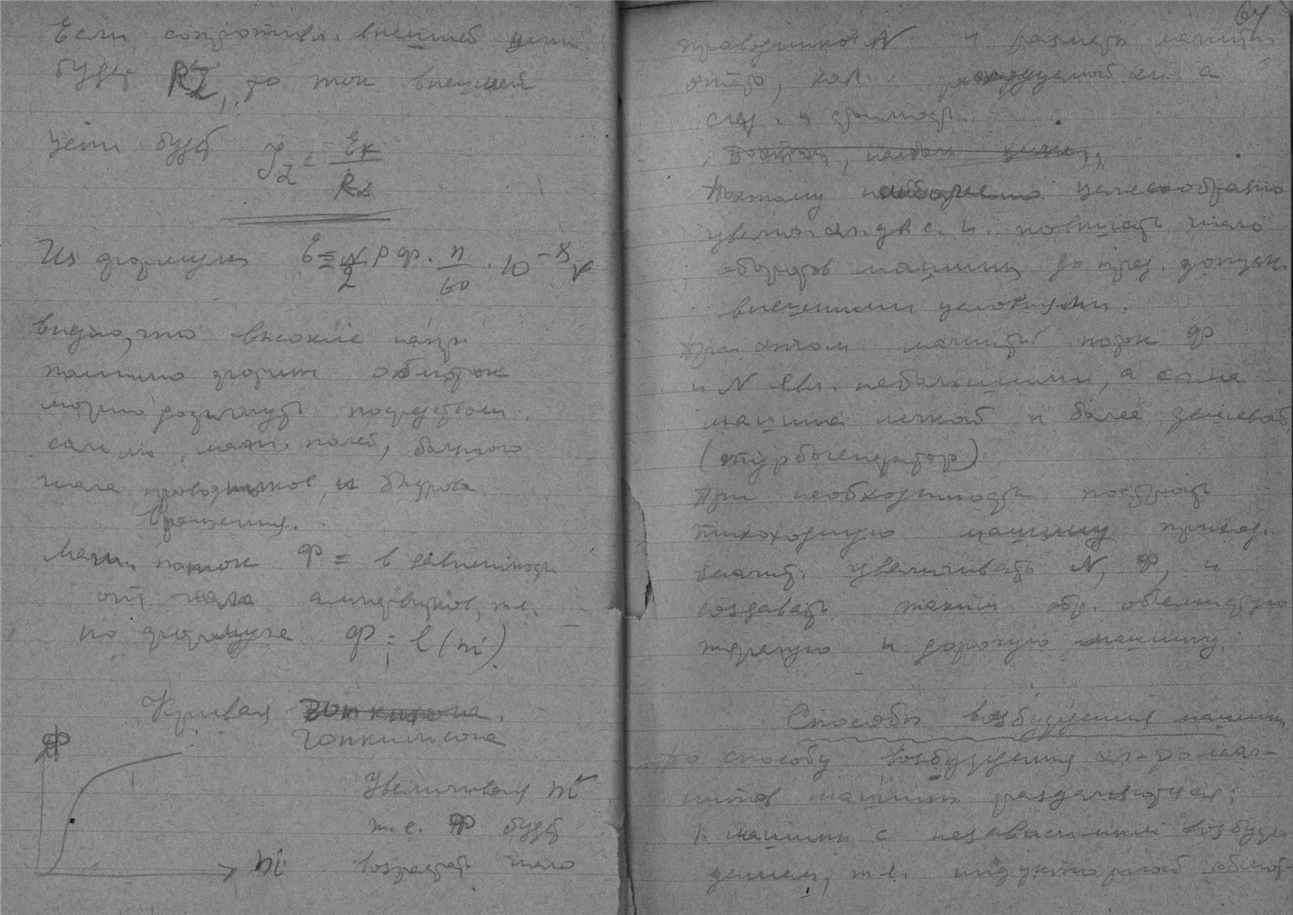 Если сопротивл. внешней цепи
будет R2, то ток внешней
цепи будет J2 = Eк / R2
Из формулы E = N/2 p Ф · n/60 · 10^-8 v
видно, что высокие напр.
помимо обмоток
можно посредством
магн. полей, большого
числа проводников, и
вращения.
Магн. поток Ф = в зависимости
от числа ампервитков, т.е.
по формуле Ф = l (ni)
Кривая
Гопкинсона
Ф
Увеличивая ni
т.е. Ф будет
ni возрастать число
64
проводников N и размеры магнит.
а
след. и стоимость.
Поэтому целесообразно
увелич. повышать число
оборотов машины до пред. допуск.
внешними условиями.
При этом магнитн. поток Ф
и N явл. небольшими, а сама
машина легкой и более дешевой
(турбогенератор)
При необходимости построить
тихоходную машину приход.
значит. увеличивать N, Ф, и
создавать таким обр. объемистую
тяжелую и дорогую машину.
Способы возбуждения машин
По способу возбуждения эл-ромаг-
нитов машины разделяются:
1. машины с независимым возбуж-
дением, т.е. обмот-